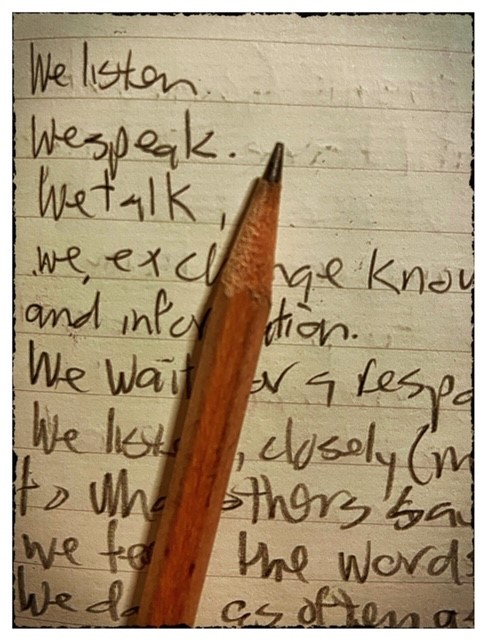 We listen
We speak.
We talk,
we, exchange know
and information.
We wait for a respo
We listen, closely (m
to what others say
we the words
We as often as